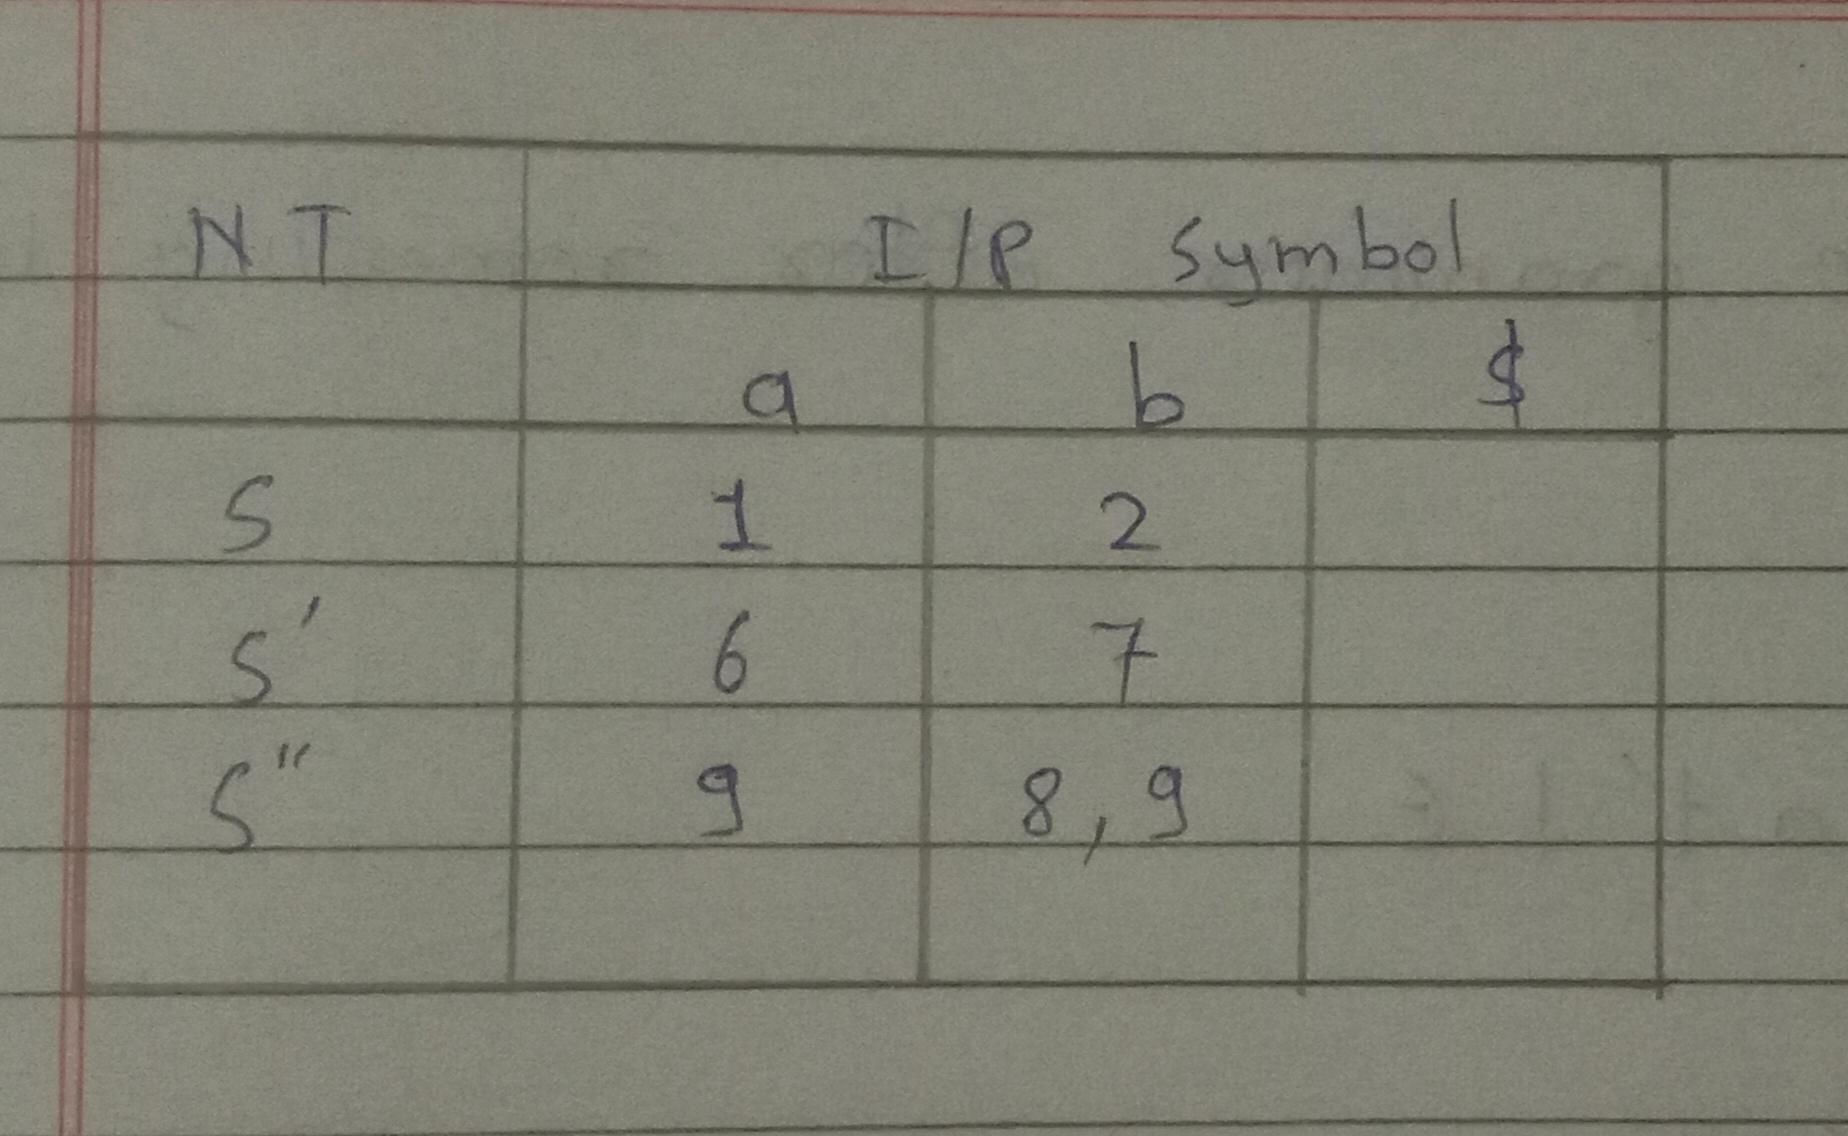 NT I/P Symbol
a b $
S 1 2
S' 6 7
S" 9 8,9